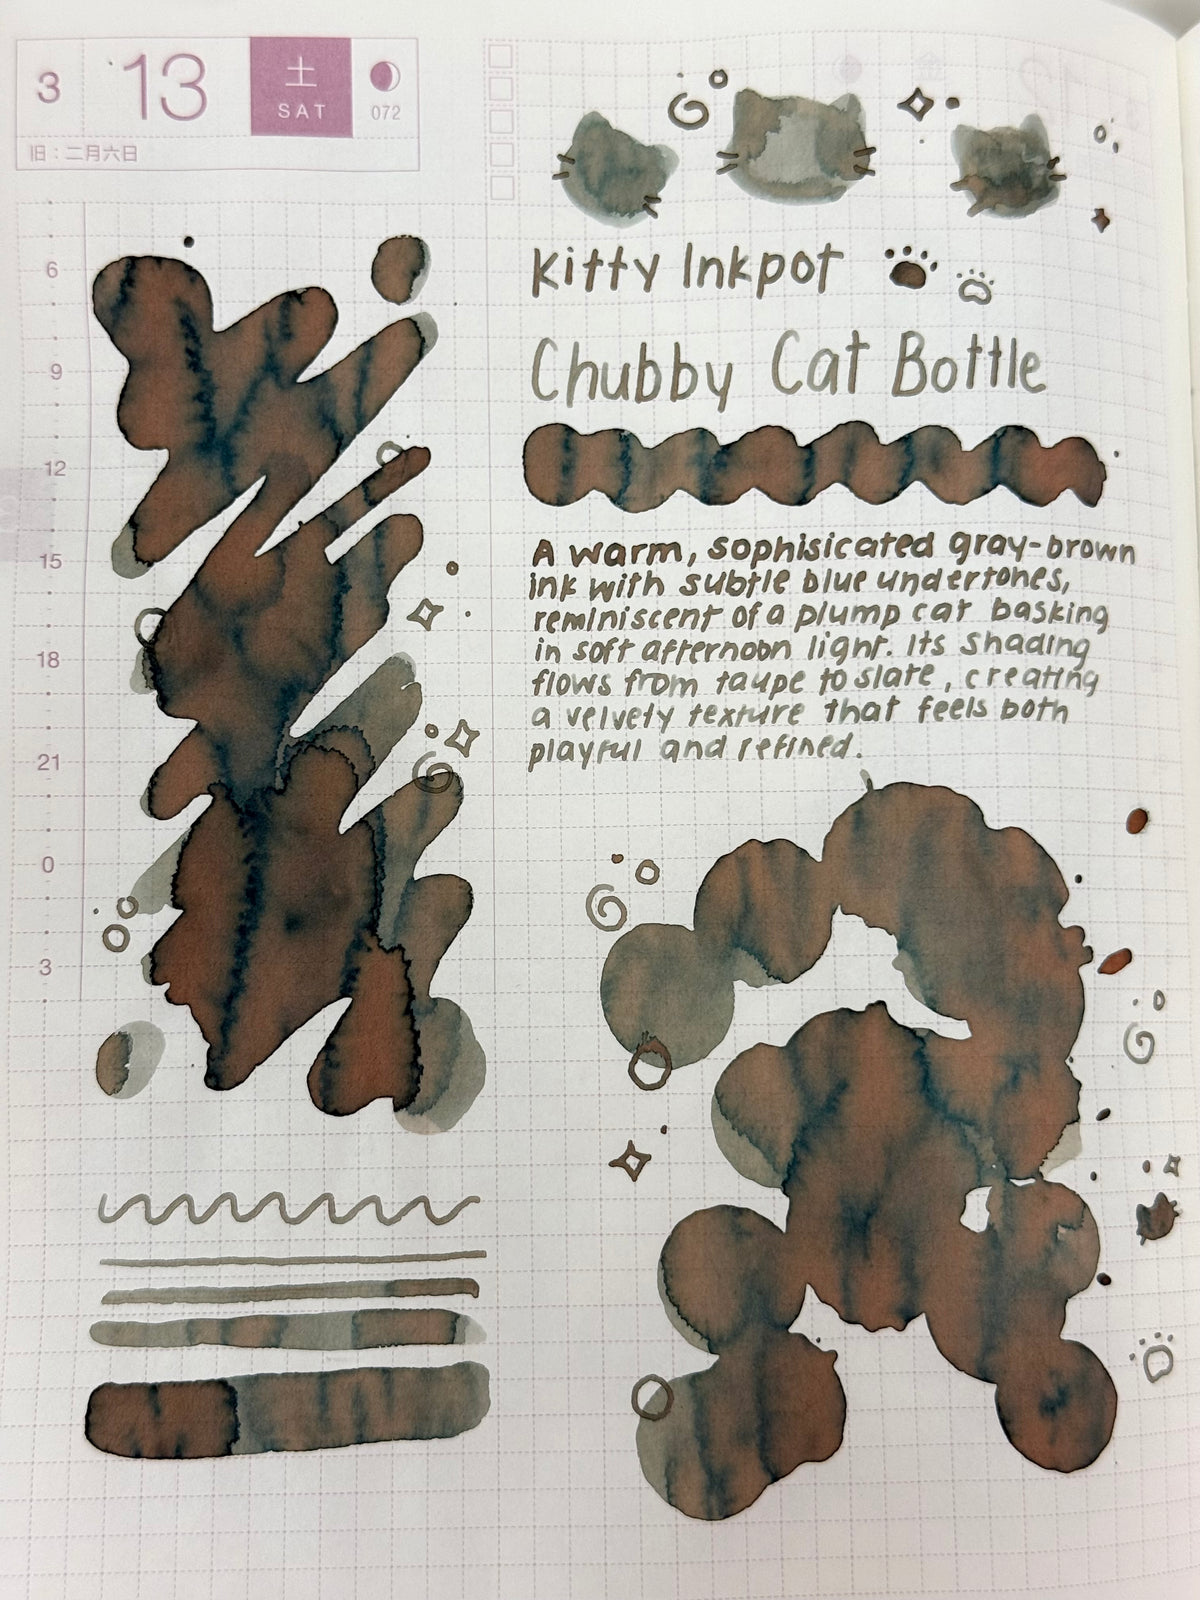 3 13 土 SAT 072
旧：二月六日
6
9
12
15
18
21
0
3
Kitty Inkpot
Chubby Cat Bottle
A warm, sophisicated gray-brown
ink with subtle blue undertones,
reminiscent of a plump cat basking
in soft afternoon light. Its shading
flows from taupe to slate, creating
a velvety texture that feels both
playful and refined.